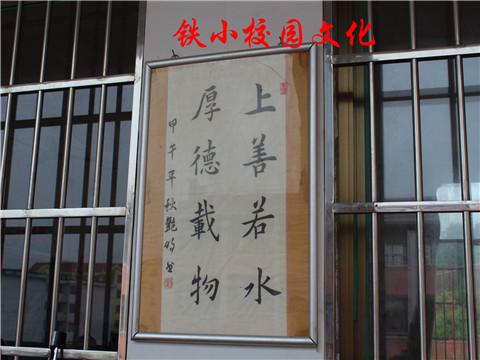 铁小校园文化
上善若水
厚德載物
甲午年秋艷